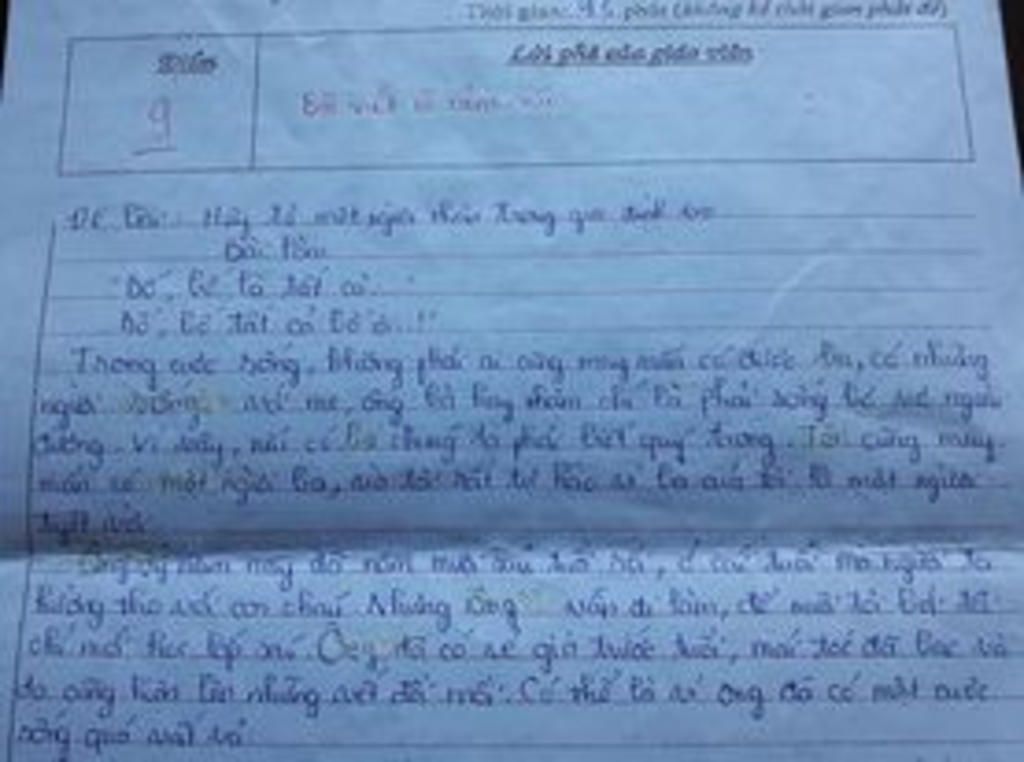 Thời gian: 45 phút (không kể thời gian phát đề)
Điểm
Lời phê của giáo viên
9
Đề bài: Hãy tả một người thân trong gia đình em
Bài làm
"Bố, bố là tất cả...
Bố, bố tất cả bố ơi..!"
Trong cuộc sống, không phải ai cũng may mắn có được ba, có những
người sống với mẹ, ông bà hay thậm chí là phải sống ngoài
đường. Vì vậy, nếu có ba chúng ta phải biết quý trọng. Tôi cũng may
mắn có một người ba, và tôi rất tự hào vì ba của tôi là một người
tuyệt vời.
Ông ấy năm nay đã năm mươi sáu tuổi rồi, ở cái tuổi mà người ta
hưởng thọ với con cháu. Nhưng ông vẫn đi làm, để nuôi tôi bởi tôi
chỉ mới học lớp sáu. Ông đã có vẻ già trước tuổi, mái tóc đã bạc và
da cũng hiện lên những vết đồi mồi. Có thể là vì ông đã có một cuộc
sống quá vất vả.